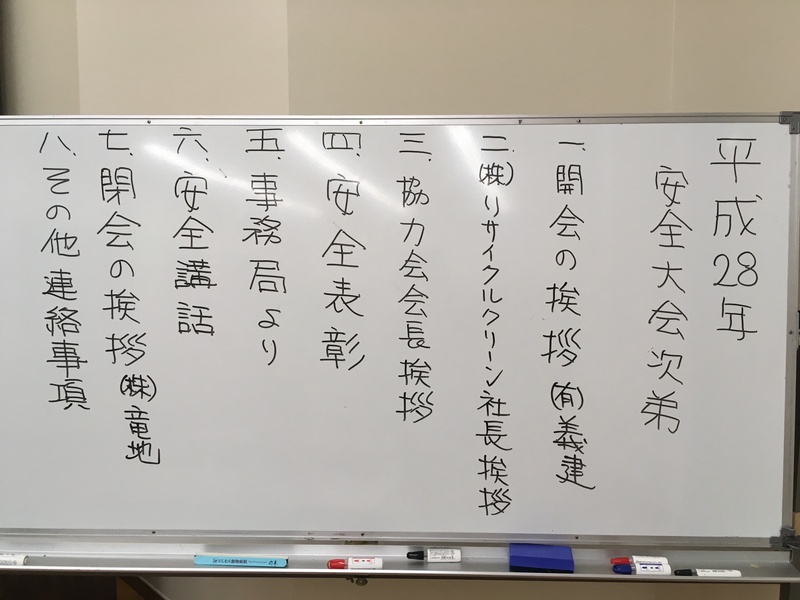 平成28年
安全大会次弟
一、開会の挨拶 ㈲義建
二、㈱リサイクルクリーン社長挨拶
三、協力会会長挨拶
四、安全表彰
五、事務局より
六、安全講話
七、閉会の挨拶 ㈱竜地
八、その他連絡事項